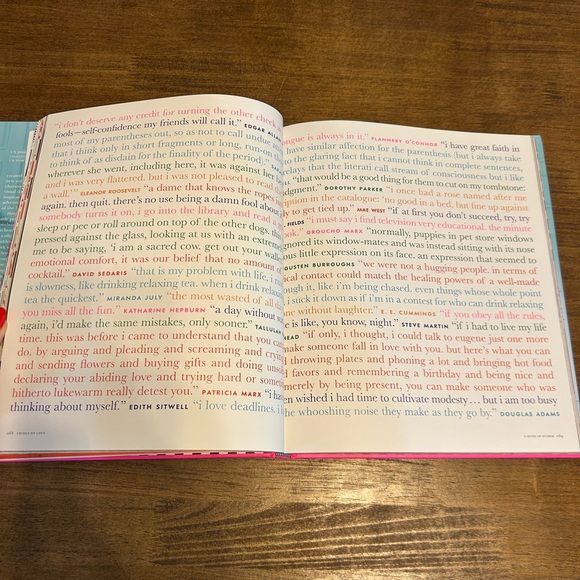 "i don't deserve any credit for turning the other cheek tongue is always in it." FLANNERY O'CONNOR "i have great faith in
fools—self-confidence my friends will call it." EDGAR ALLAN have similar affection for the parenthesis (but i always take
most of my parentheses out, so as not to call undue to the glaring fact that i cannot think in complete sentences,
that i think only in short fragments or long, run-on relays that the literati call stream of consciousness but i like
to think of as disdain for the finality of the period)." "that would be a good thing for them to cut on my tombstone:
wherever she went, including here, it was against her judgment." DOROTHY PARKER "i once had a rose named after me
and i was very flattered. but i was not pleased to read description in the catalogue: 'no good in a bed, but fine up against
a wall.'" ELEANOR ROOSEVELT "a dame that knows the ropes ly to get tied up." MAE WEST "if at first you don't succeed, try, try
again. then quit. there's no use being a damn fool about FIELDS "i must say i find television very educational. the minute
somebody turns it on, i go into the library and read a book." GROUCHO MARX "normally, puppies in pet store windows
sleep or pee or roll around on top of the other dogs, this ignored its window-mates and was instead sitting with its nose
pressed against the glass, looking at us with an extreme ous little expression on its face. an expression that seemed to
me to be saying, 'i am a sacred cow. get out your AUGUSTEN BURROUGHS "we were not a hugging people. in terms of
emotional comfort, it was our belief that no amount of physical contact could match the healing powers of a well-made
cocktail." DAVID SEDARIS "that is my problem with life, i through it, like i'm being chased. even things whose whole point
is slowness, like drinking relaxing tea. when i drink relaxing i suck it down as if i'm in a contest for who can drink relaxing
tea the quickest." MIRANDA JULY "the most wasted of all one without laughter." E. E. CUMMINGS "if you obey all the rules,
you miss all the fun." KATHARINE HEPBURN "a day without e is like, you know, night." STEVE MARTIN "if i had to live my life
again, i'd make the same mistakes, only sooner." TALLULAH HEAD "if only, i thought, i could talk to eugene just one more
time. this was before i came to understand that you make someone fall in love with you. but here's what you can
do. by arguing and pleading and screaming and crying throwing plates and phoning a lot and bringing hot food
and sending flowers and buying gifts and doing favors and remembering a birthday and being nice and
declaring your abiding love and trying hard or some merely by being present, you can make someone who was
hitherto lukewarm really detest you." PATRICIA MARX "i have en wished i had time to cultivate modesty... but i am too busy
thinking about myself." EDITH SITWELL "i love deadlines, i the whooshing noise they make as they go by." DOUGLAS ADAMS